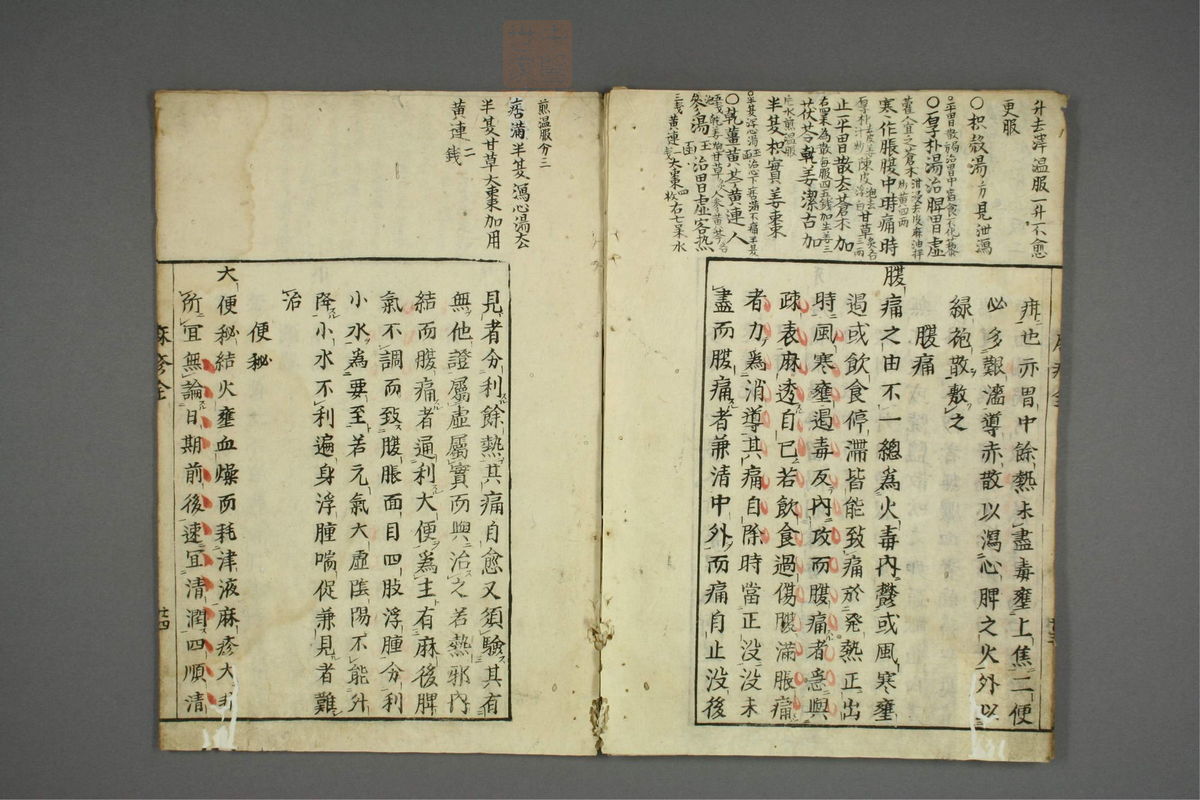 升去滓温服一升不愈
更服
○枳殼湯方見泄瀉
○平胃散
○厚朴湯治脾胃虛
寒作脹腹中時痛時
正平胃散去蒼朮加
茯苓乾姜潔古加
半夏枳實姜棗
○乾薑黃芩黃連人
參湯玉治胃虛客熱
疳也亦胃中餘熱未盡毒壅上焦二便
必多艱濇導赤散以瀉心脾之火外以
綠袍散敷之
腹痛
腹痛之由不一總爲火毒內鬱或風寒壅
遏或飲食停滯皆能致痛於発熱正出
時風寒壅遏毒反內攻而腹痛者急與
疎表麻透自已若飲食過傷腹滿脹痛
者力爲消導其痛自除時當正没没未
盡而腹痛者兼清中外而痛自止没後
煎温服分三
痞滿半夏瀉心湯去
半夏甘草大棗加用
黃連二錢
見者分利餘熱其痛自愈又須驗其有
無他證屬虛屬實而與治之若熱邪內
結而腹痛者通利大便爲主有麻後脾
氣不調而致腹脹面目四肢浮腫分利
小水為要至若元氣大虛陰陽不能升
降小水不利遍身浮腫喘促兼見者難
治
便秘
大便秘結火壅血燥而耗津液麻疹大
所宜無論日期前後速宜清潤四順清
麻疹全
廿四